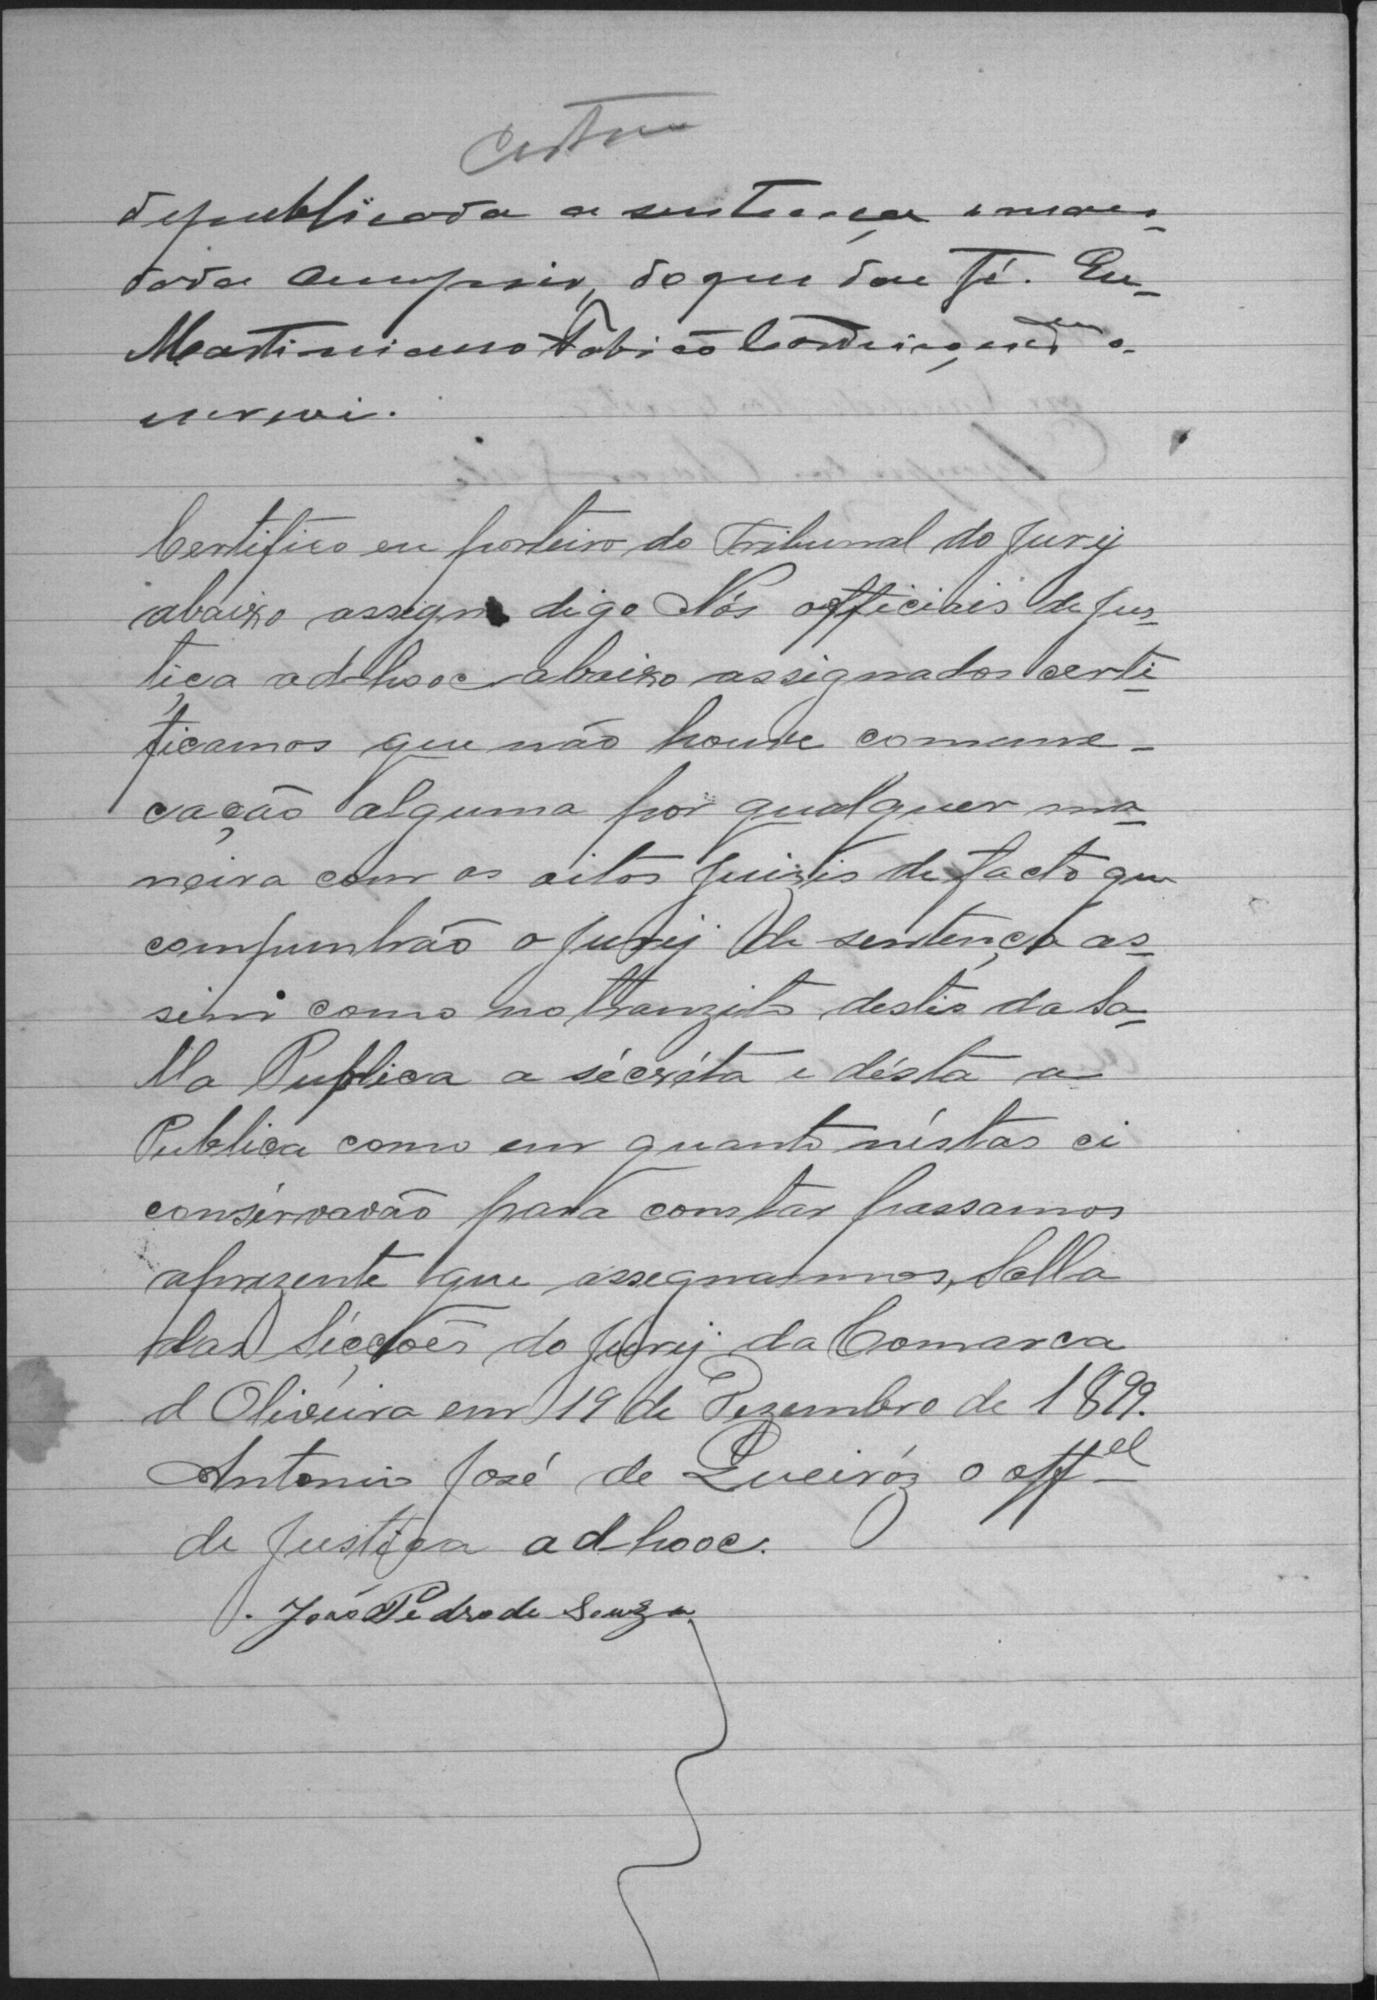 depublicada a sentença eman-
dada cumprir, do que dou fé. Eu
Martiniano
escrevi.
Certifico eu porteiro do Tribunal do Jury
abaixo assign digo Nós officiais de Jus-
tiça ad-hooc abaixo assignados certi-
ficamos que não houve comune-
cação alguma por qualquer ma-
neira com os oitos Juizis de facto que
compunhão o Jury de sentença as-
sim como no tranzito destis da Sa-
lla Publica a sécréta e désta a
Publica como em quanto néstas ci
consérvavão para constar passamos
aprezente que assegnamos, Salla
das Sécções do Jury da Comarca
d Oliveira em 19 de Dezembro de 1899.
Antonio José de Queiróz o offel
de Justiça adhooc.
João Pedro de Souza